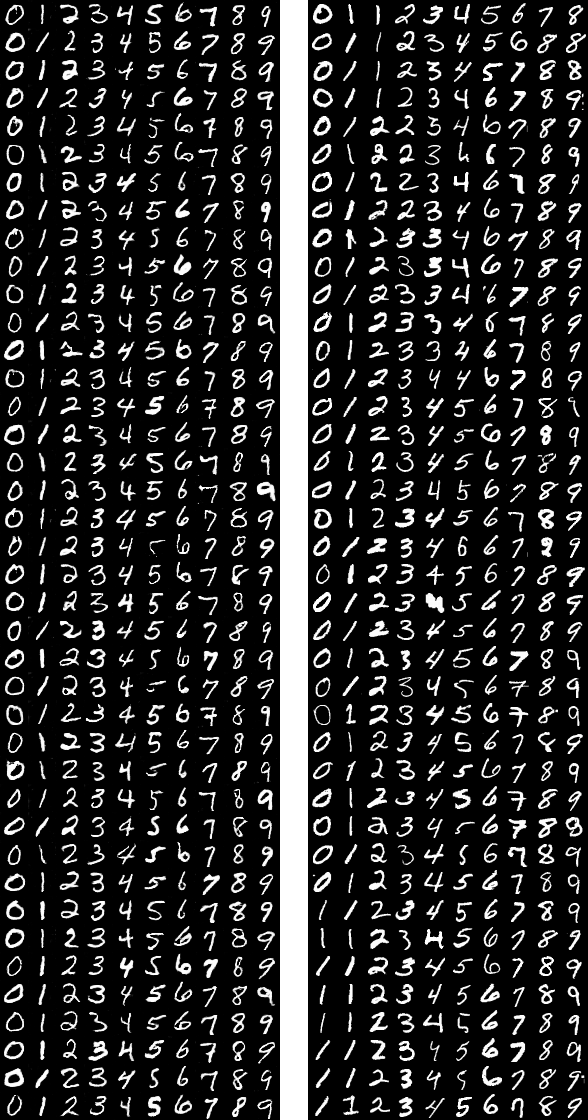 0 1 2 3 4 5 6 7 8 9
0 1 2 3 4 5 6 7 8 9
0 1 2 3 4 5 6 7 8 9
0 1 2 3 4 5 6 7 8 9
0 1 2 3 4 5 6 7 8 9
0 1 2 3 4 5 6 7 8 9
0 1 2 3 4 5 6 7 8 9
0 1 2 3 4 5 6 7 8 9
0 1 2 3 4 5 6 7 8 9
0 1 2 3 4 5 6 7 8 9
0 1 2 3 4 5 6 7 8 9
0 1 2 3 4 5 6 7 8 9
0 1 2 3 4 5 6 7 8 9
0 1 2 3 4 5 6 7 8 9
0 1 2 3 4 5 6 7 8 9
0 1 2 3 4 5 6 7 8 9
0 1 2 3 4 5 6 7 8 9
0 1 2 3 4 5 6 7 8 9
0 1 2 3 4 5 6 7 8 9
0 1 2 3 4 5 6 7 8 9
0 1 2 3 4 5 6 7 8 9
0 1 2 3 4 5 6 7 8 9
0 1 2 3 4 5 6 7 8 9
0 1 2 3 4 5 6 7 8 9
0 1 2 3 4 5 6 7 8 9
0 1 2 3 4 5 6 7 8 9
0 1 2 3 4 5 6 7 8 9
0 1 2 3 4 5 6 7 8 9
0 1 2 3 4 5 6 7 8 9
0 1 2 3 4 5 6 7 8 9
0 1 2 3 4 5 6 7 8 9
0 1 2 3 4 5 6 7 8 9
0 1 2 3 4 5 6 7 8 9
0 1 2 3 4 5 6 7 8 9
0 1 2 3 4 5 6 7 8 9
0 1 2 3 4 5 6 7 8 9
0 1 2 3 4 5 6 7 8 9
0 1 2 3 4 5 6 7 8 9
0 1 2 3 4 5 6 7 8 9
0 1 2 3 4 5 6 7 8 9
0 1 1 2 3 4 5 6 7 8
0 1 1 2 3 4 5 6 8 8
0 1 1 2 3 4 5 7 8 8
0 1 1 2 3 4 6 7 8 9
0 1 2 2 3 4 6 7 8 9
0 1 2 2 3 6 6 7 8 9
0 1 2 2 3 4 6 7 8 9
0 1 2 2 3 4 6 7 8 9
0 1 2 3 3 4 6 7 8 9
0 1 2 3 3 4 6 7 8 9
0 1 2 3 3 4 6 7 8 9
0 1 2 3 3 4 6 7 8 9
0 1 2 3 3 4 6 7 8 9
0 1 2 3 4 4 6 7 8 9
0 1 2 3 4 5 6 7 8 9
0 1 2 3 4 5 6 7 8 9
0 1 2 3 4 5 6 7 8 9
0 1 2 3 4 5 6 7 8 9
0 1 2 3 4 5 6 7 8 9
0 1 2 3 4 6 6 7 2 9
0 1 2 3 4 5 6 7 8 9
0 1 2 3 4 5 6 7 8 9
0 1 2 3 4 5 6 7 8 9
0 1 2 3 4 5 6 7 8 9
0 1 2 3 4 5 6 7 8 9
0 1 2 3 4 5 6 7 8 9
0 1 2 3 4 5 6 7 8 9
0 1 2 3 4 5 6 7 8 9
0 1 2 3 4 5 6 7 8 9
0 1 2 3 4 5 6 7 8 8
0 1 2 3 4 5 6 7 8 9
0 1 2 3 4 5 6 7 8 9
1 1 2 3 4 5 6 7 8 9
1 1 2 3 4 5 6 7 8 9
1 1 2 3 4 5 6 7 8 9
1 1 2 3 4 5 6 7 8 9
1 1 2 3 4 5 6 7 8 9
1 1 2 3 4 5 6 7 8 9
1 1 2 3 4 5 6 7 8 9
1 1 2 3 4 5 6 7 8 9